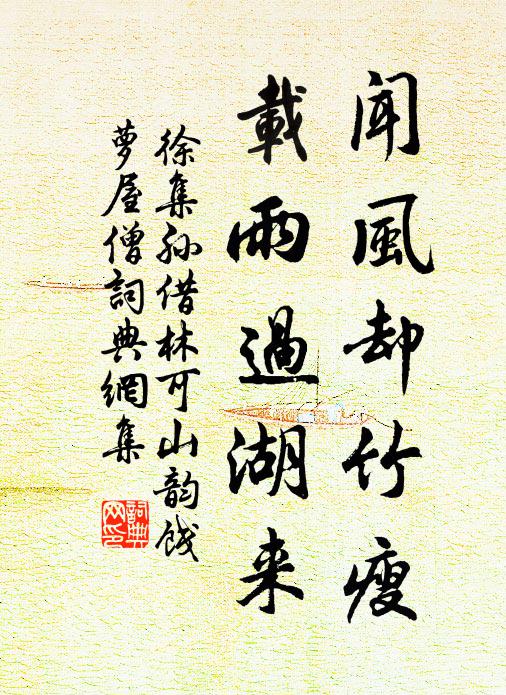 聞風却竹瘦
載雨過湖来
徐集孙借林可山韵饯
萝屋僧詞典網集
詞典
网印